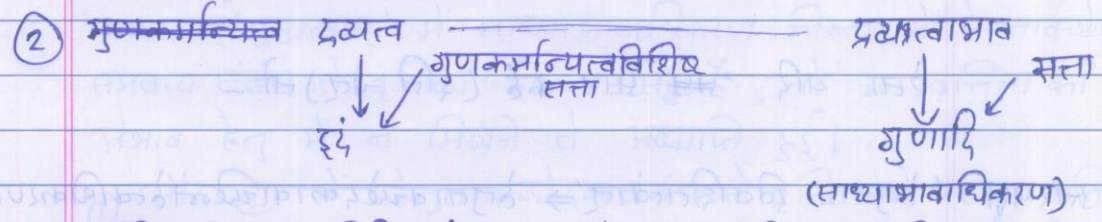 ② गुणकर्मान्यत्व द्रव्यत्व द्रव्यत्वाभाव
गुणकर्मान्यत्वविशिष्ट सत्ता
सत्ता
इदं गुणादि
(साध्याभावाधिकरण)